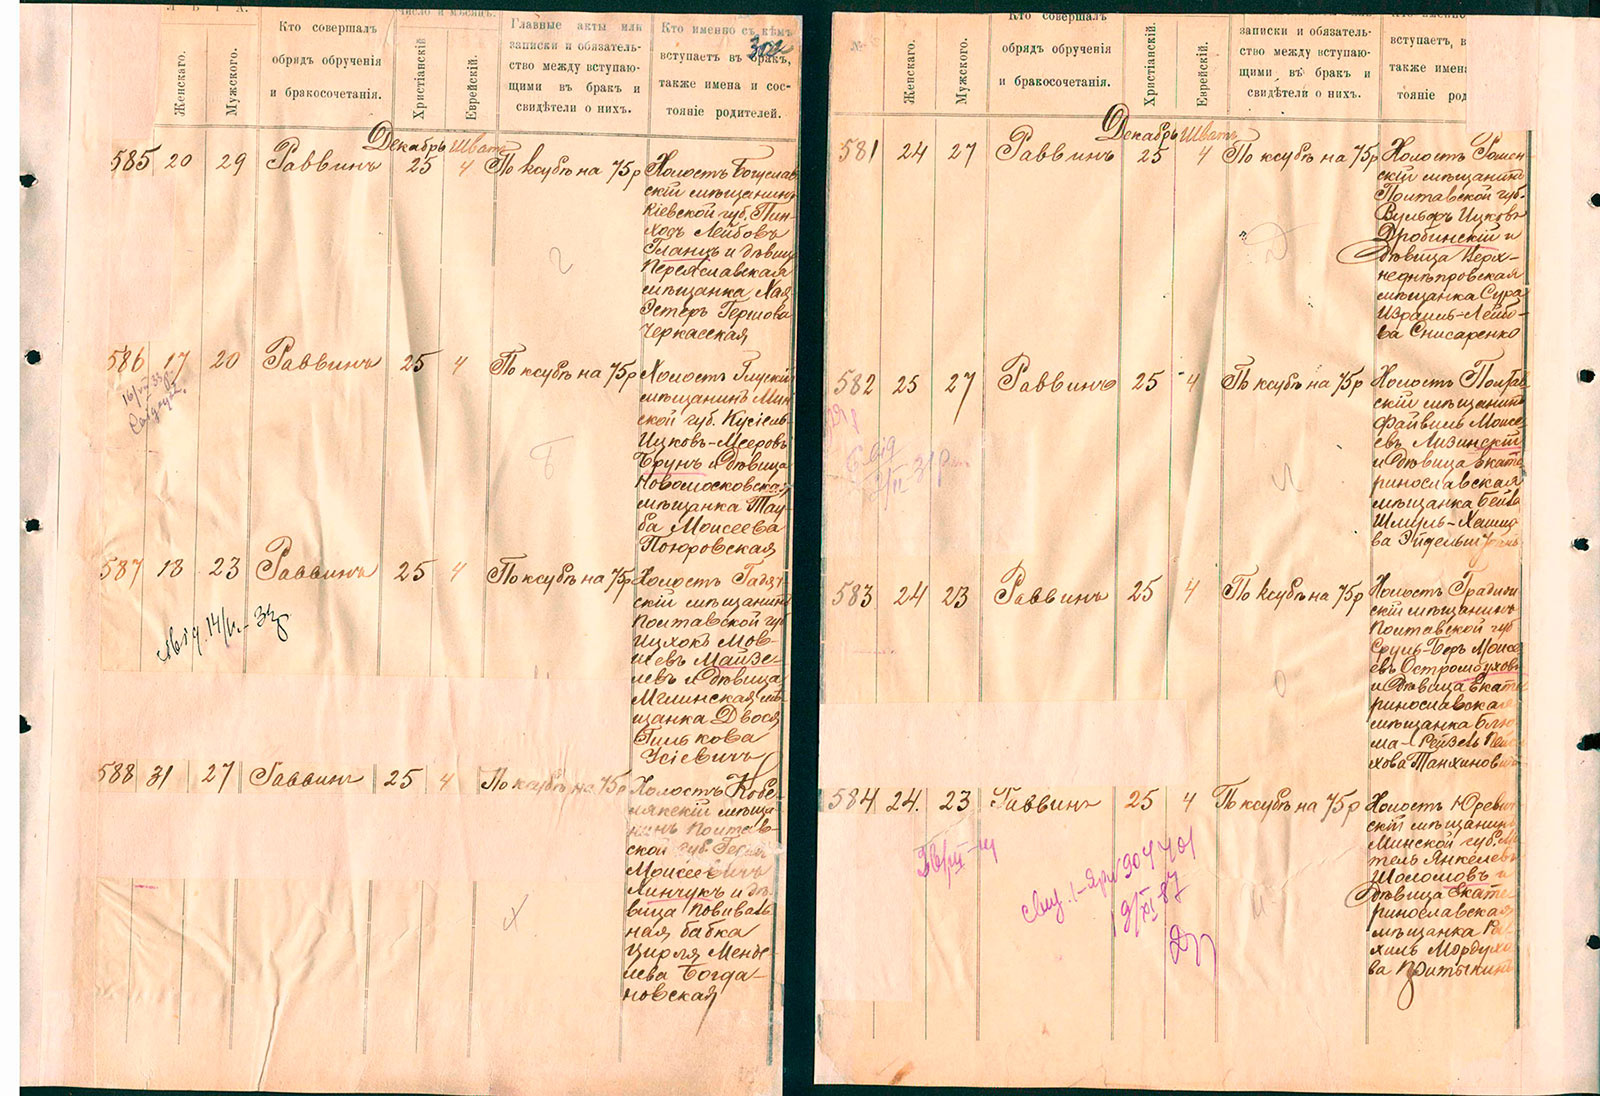 Л Ѣ Т А.
Женскаго.
Мужского.
Кто совершалъ
обрядъ обрученія
и бракосочетанія.
Число и мѣсяцъ.
Христіанскій
Еврейскій.
Главные акты или
записки и обязатель-
ство между вступаю-
щими въ бракъ и
свидѣтели о нихъ.
Кто именно съ кѣмъ
вступаетъ въ бракъ,
также имена и сос-
тояніе родителей.
Декабрь Шватъ
585 20 29 Раввинъ 25 4 По ксубѣ на 75 р
Холостъ Богуслав
скій мѣщанинъ
Кіевской губ. Пин-
хосъ Лейбовъ
Гланцъ и дѣвица
Переяславская
мѣщанка Хая
Эстеръ Гершова
Черкасская
586 17 20 Раввинъ 25 4 По ксубѣ на 75 р
Холостъ Глускій
мѣщанинъ Мин
ской губ. Кусіель-
Ицковъ-Мееровъ
Брунъ и дѣвица
Новомосковская
мѣщанка Тау-
ба Моисеева
587 18 23 Раввинъ 25 4 По ксубѣ на 75р
Холостъ Гадяч-
скій мѣщанинъ
Полтавской губ
Ицхокъ Мов-
шевъ Майзе-
левъ и дѣвица
Мглинская мѣ-
щанка Двося
Гилькова
Усіевичъ
588 31 27 Раввинъ 25 4 По ксубѣ на 75р
Холостъ Кобе-
лякскій мѣща-
нинъ Полтав-
ской губ.
Моисеевичъ
Линчукъ и дѣ-
вица Повиваль
ная бабка
Цирля Менде-
лева Богда-
новская
№
Женскаго.
Мужского.
Кто совершалъ
обрядъ обрученія
и бракосочетанія.
Христіанскій
Еврейскій.
записки и обязатель-
ство между вступаю-
щими въ бракъ и
свидѣтели о нихъ.
вступаетъ, в
также имена
тояніе род
Декабрь Шватъ
581 24 27 Раввинъ 25 4 По ксубѣ на 75р
Холостъ Ромен-
скій мѣщанинъ
Полтавской губ.
Вульфъ Ицковъ
Дробинскій и
дѣвица Верх-
неднѣпровская
мѣщанка Сура
Израиль-Лейбо-
ва Снисаренко
582 25 27 Раввинъ 25 4 По ксубѣ на 75р
Холостъ Полтав
скій мѣщанинъ
Файвиль Моисе
евъ Лизинскій
и дѣвица Екате
ринославская
мѣщанка Бейла
Шмуль-Хаимо
ва
583 24 23 Раввинъ 25 4 По ксубѣ на 75р
Холостъ Градиж
скій мѣщанинъ
Полтавской губ
Сруль-Беръ Моисе
евъ Остромуховъ
и дѣвица Екате
ринославская
мѣщанка Блю
ма-Рейзель Пей
хова Танхиновичъ
584 24 23 Раввинъ 25 4 По ксубѣ на 75р
Холостъ Юревич
скій мѣщанинъ
Минской губ. Мо
тель Янкелевъ
Шоломовъ и
дѣвица Екате-
ринославская
мѣщанка Ра-
хиль Мордухо
ва Притыкинъ